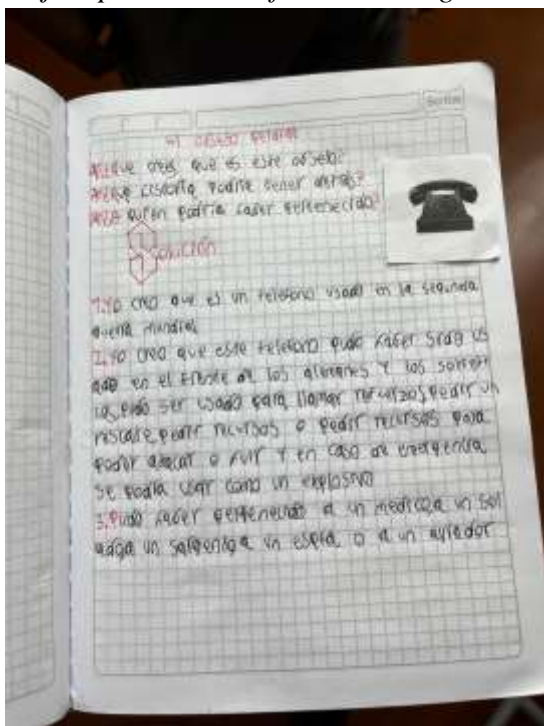 El objeto
1. ¿Que crees que es este objeto?
2. ¿Que historia podria tener atras?
3. ¿A quien podria haber pertenecido?
Solución
1. Yo creo que es un telefono usado en la segunda
guerra mundial
2. Yo creo que este telefono pudo haber sido us
ado en el frente de los alemanes y los soviet
icos, pudo ser usado para llamar refuerzos, pedir un
rescate, pedir recursos o pedir recursos para
poder atacar o huir y en caso de emergencia
se podia usar como un explosivo
3. Pudo haber pertenecido a un medico, a un sol
dado, a un sargento, a un espia o a un aviador